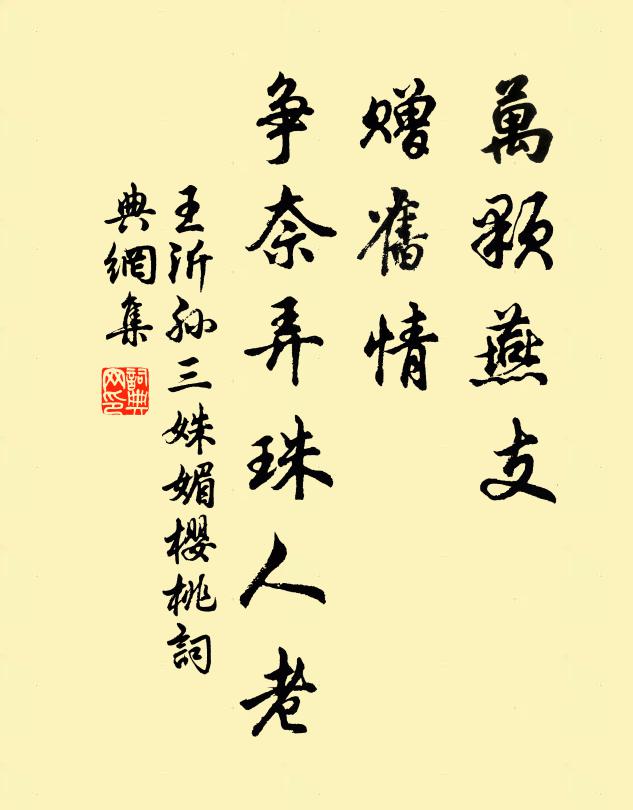 萬顆燕支
贈舊情
争奈弄珠人老
王沂孫三姝媚櫻桃詞
典網集
詞典
网印